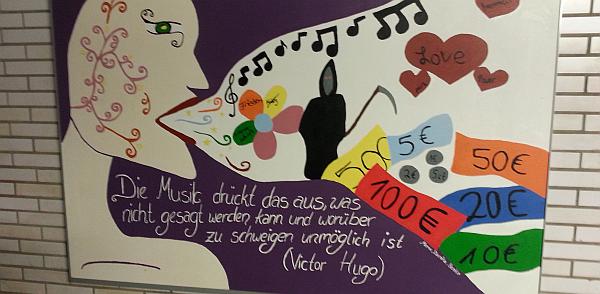 Love
5€
50€
50
100€
20€
10€
Die Musik drückt das aus, was
nicht gesagt werden kann und worüber
zu schweigen unmöglich ist
(Victor Hugo)